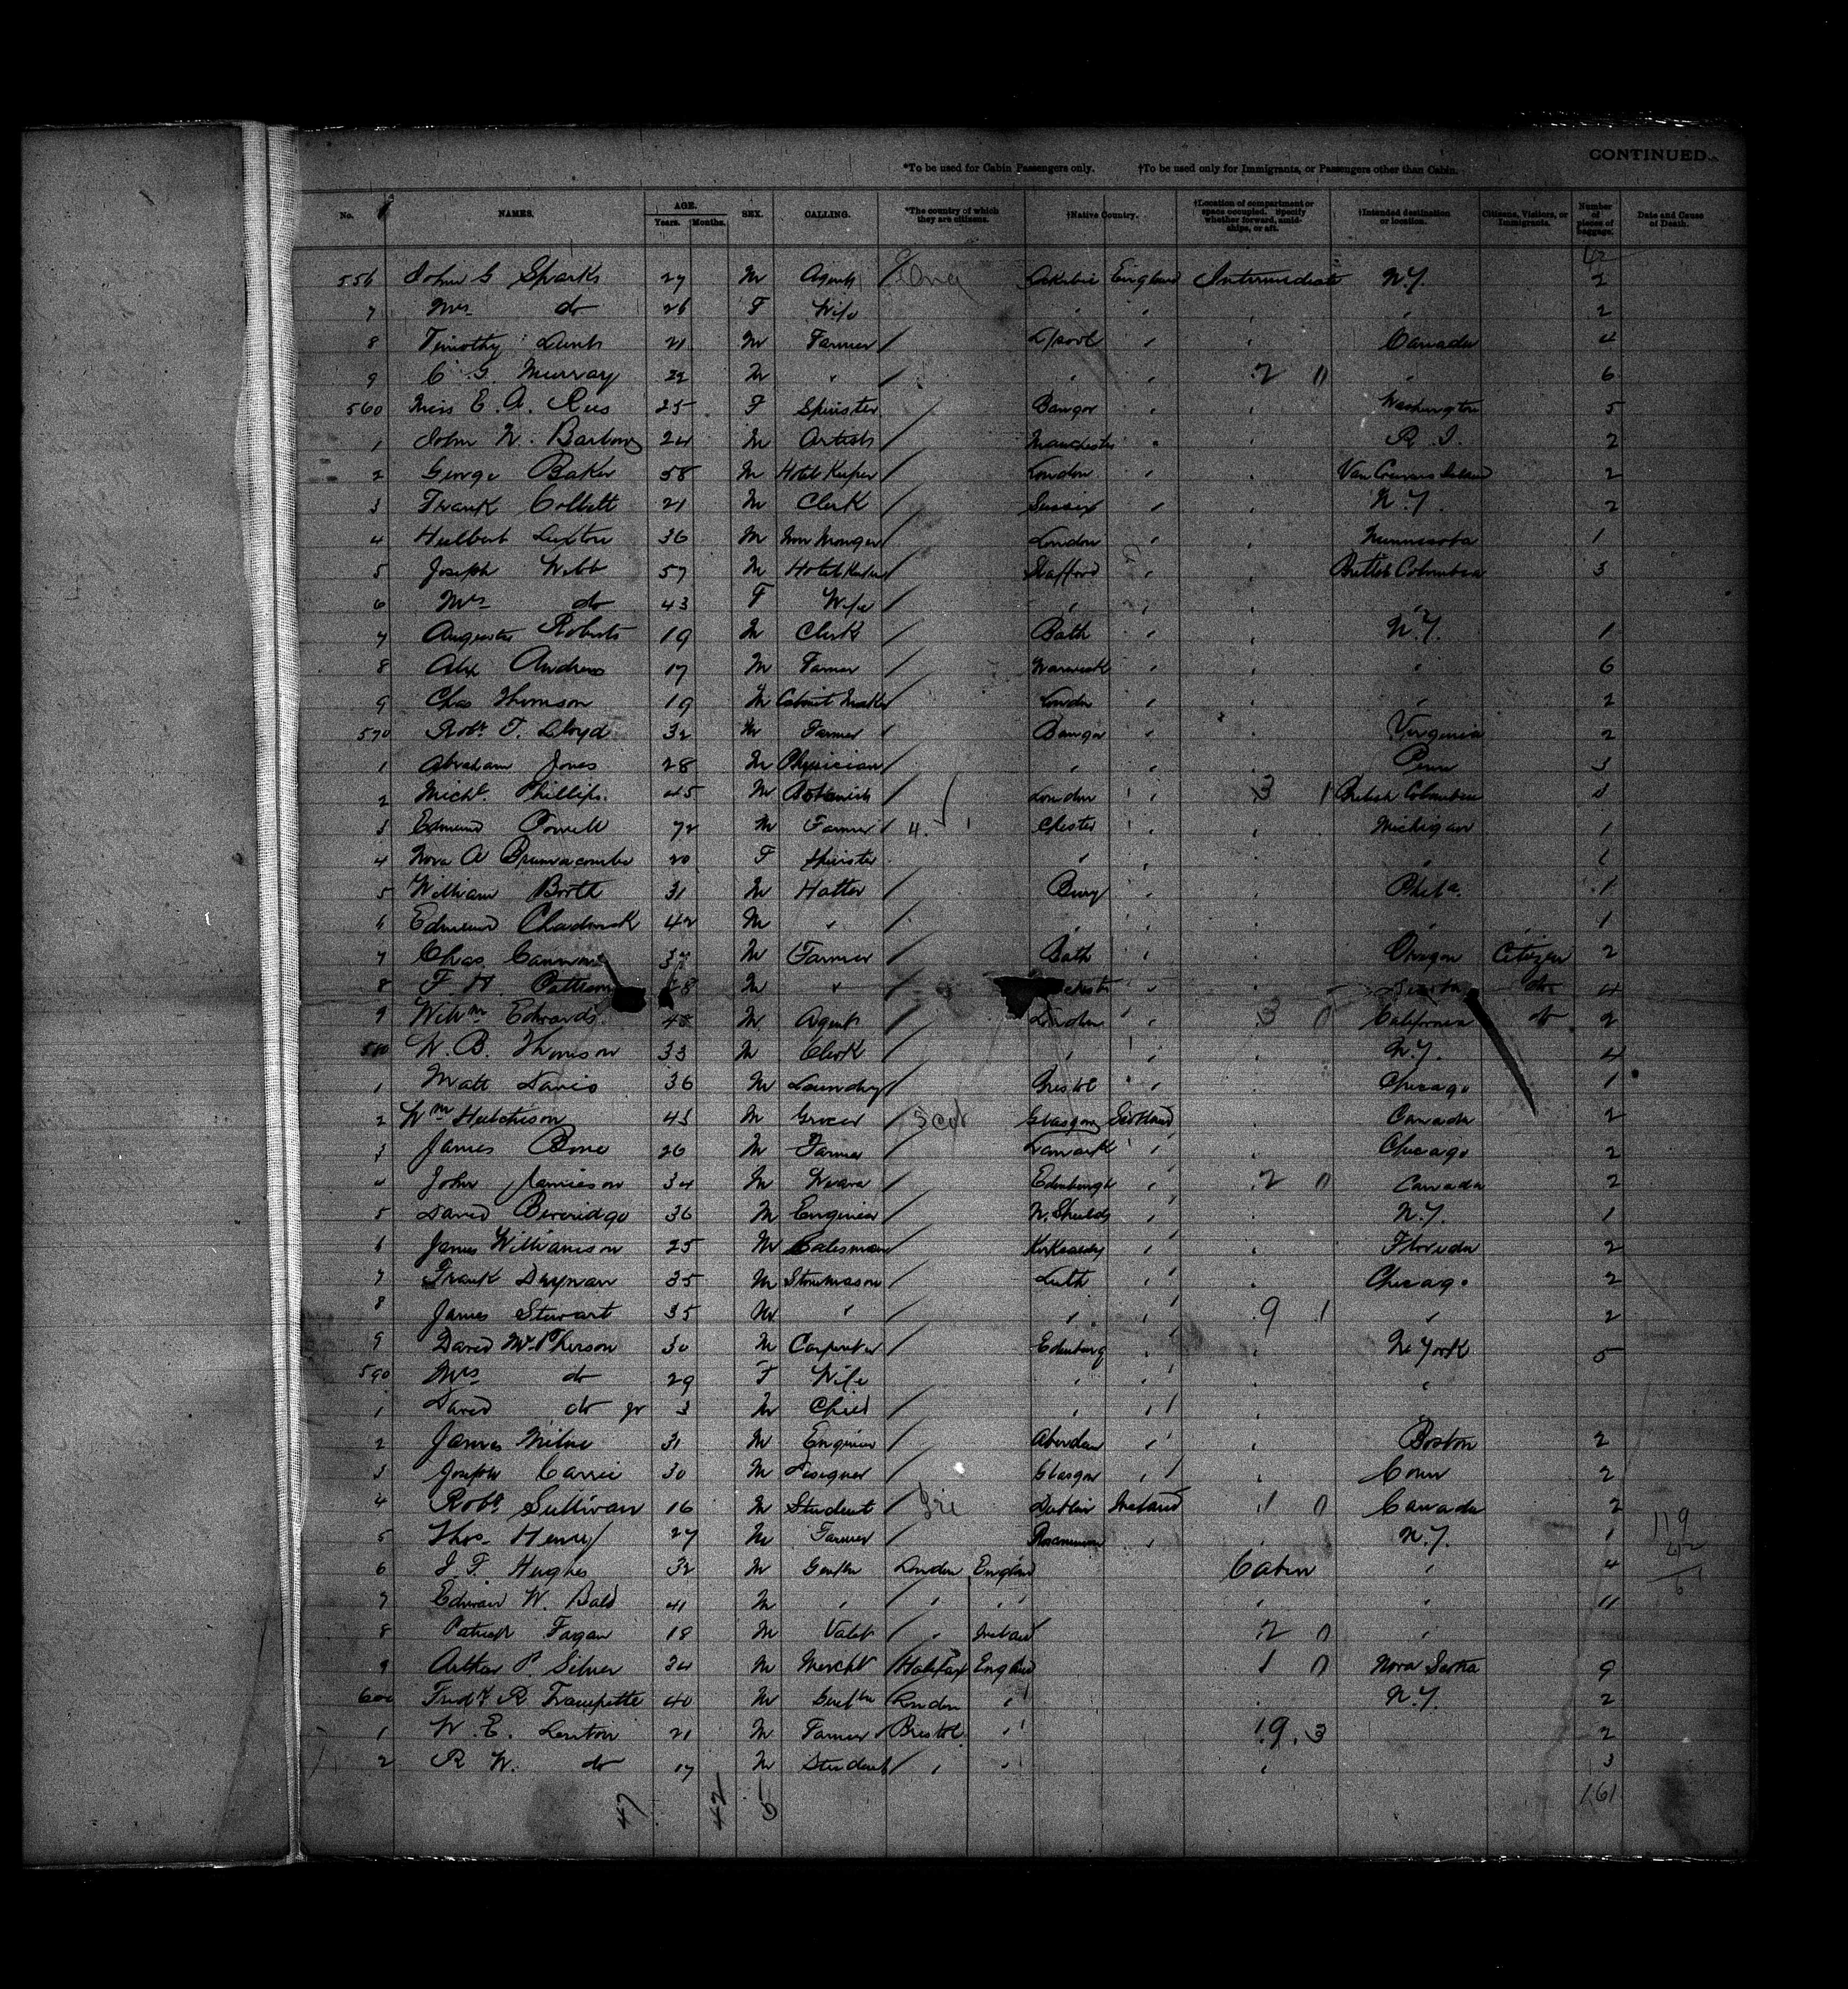 CONTINUED.
*To be used for Cabin Passengers only. †To be used only for Immigrants, or Passengers other than Cabin.
No. NAMES. AGE. Years. Months. SEX. CALLING. *The country of which they are citizens. †Native Country. †Location of compartment or space occupied. Specify whether forward, amidships, or aft. †Intended destination or location. Citizens, Visitors, or Immigrants. Number of pieces of baggage. Date and Cause of Death.
42
556 John G Sparks 27 M Agent England Intermediate N.Y. 2
7 Mrs do 26 F Wife 2
8 Timothy 21 M Farmer L'pool Canada 4
9 C G. Murray 22 M " 2 0 " 6
560 Miss E. A. Rees 25 F Spinster Bangor Washington 5
1 John W. Barlow 24 M Artist Manchester R I. 2
2 George Baker 58 M Hotel Keeper London VanCouvers Island 2
3 Frank Collett 21 M Clerk Sussex N.Y. 2
4 Hulbert Luxton 36 M Iron Monger London Minnesota 1
5 Joseph Webb 57 M Hotel Keeper Stafford British Columbia 3
6 Mrs do 43 F Wife "
7 Augustus Roberts 19 M Clerk Bath N.Y. 1
8 Alex Andrews 17 M Farmer Warwick " 6
9 Chas Thomson 19 M Cabinet Maker London " 2
570 Robt T. Lloyd 32 M Farmer Bangor Virginia 2
1 Abraham Jones 28 M Physician " Penn 3
2 Michl. Phillips 45 M Botanist London 3 1 British Columbia
3 Edmund Powell 72 M Farmer 4. Chester Michigan 1
4 Nora A Brimacombe 20 F Spinster " " 1
5 William Booth 31 M Hatter Bury Phila. 1
6 Edmund Chadwick 42 M " " " 1
7 Chas 37 M Farmer Bath Oregon Citizen 2
8 F H. Patterson 28 M " do 4
9 Willm Edwards 48 M Agent London 3 0 California do 2
580 W. B. Thomson 33 M Clerk " N.Y. 4
1 Matt Davis 36 M Laundry Bristol Chicago 1
2 Wm Hutchison 43 M Grocer Scot Glasgow Scotland Canada 2
3 James Bone 26 M Farmer Lanark Chicago 2
4 John Jamieson 34 M Edinburgh 2 0 Canada 2
5 David Beveridge 36 M Engineer N. Shields N.Y. 1
6 James Williamson 25 M Salesman Kirkcaldy Florida 2
7 Frank Drynan 35 M Stonemason Leith Chicago 2
8 James Stewart 35 M " " 9 1 " 2
9 David McPherson 30 M Carpenter Edinburg N. York 5
590 Mrs do 29 F Wife " "
1 David do jr 3 M Child " "
2 James Milne 31 M Engineer Aberdeen Boston 2
3 Joseph Carrie 30 M Designer Glasgow Conn 2
4 Robt. Sullivan 16 M Student Ire Dublin Ireland 1 0 Canada 2
5 Thos. Henry 27 M Farmer N.Y. 1
6 J. F. Hughes 32 M Gentln London England Cabin " 4
7 Edward W. Bald 41 M " " " " " 11
8 Patrick Fagan 18 M Valet " Ireland 2 0 "
9 Arthur P. Silver 34 M Mercht Halifax England 1 0 Nova Scotia 9
600 Fredk R 40 M Gentln London " N.Y. 2
1 W. E. Lenton 21 M Farmer Bristol " 19. 3 2
2 R W. do 17 M Student " " 3
119
42
47 42 5 161